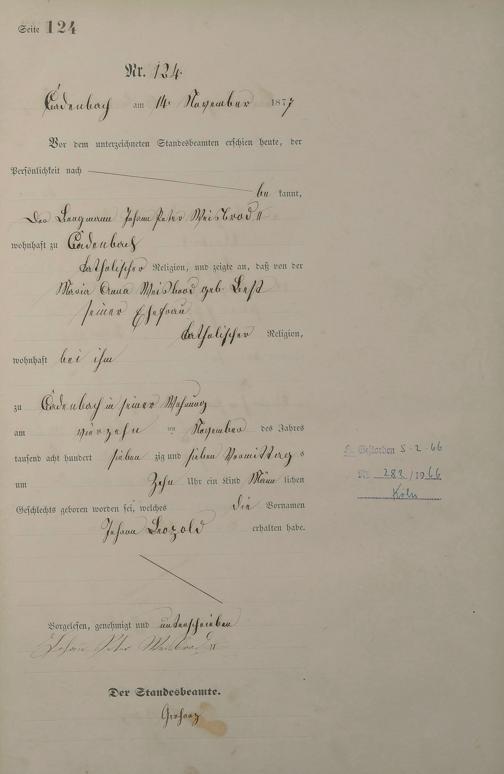 Seite 124
Nr. 124.
Cadenbach am 14. November 1877
Vor dem unterzeichneten Standesbeamten erschien heute, der
Persönlichkeit nach
be kannt,
Der Bergmann Johann Peter Weisbrod II
wohnhaft zu Cadenbach
katholischer Religion, und zeigte an, daß von der
Maria Anna Weisbrod geb.
seiner Ehefrau
katholischer Religion,
wohnhaft bei ihm
zu Cadenbach in seiner Wohnung
am vierzehn ten November des Jahres
tausend acht hundert sieben zig und sieben Vormittag s
um Zehn Uhr ein Kind Männ lichen
Geschlechts geboren worden sei, welches die Vornamen
Johann Leopold erhalten habe.
Vorgelesen, genehmigt und unterschrieben
Johann Peter Weisbrod II
Der Standesbeamte.
Gestorben 5-2-66
Nr. 282/1966
Köln